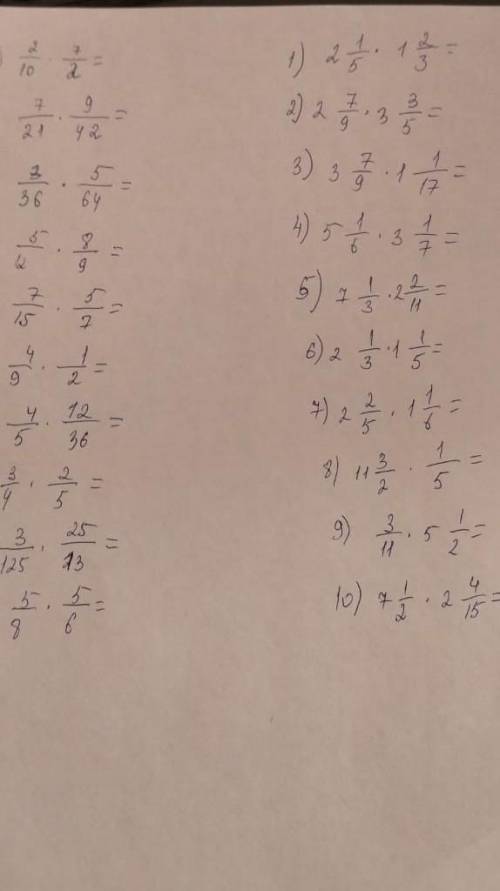 2/10 · 7/2 =
7/21 · 9/42 =
3/36 · 5/64 =
5/4 · 8/9 =
7/15 · 5/7 =
4/9 · 1/2 =
4/5 · 12/36 =
3/4 · 2/5 =
3/125 · 25/13 =
5/8 · 5/6 =
1) 2 1/5 · 1 2/3 =
2) 2 7/9 · 3 3/5 =
3) 3 7/9 · 1 1/17 =
4) 5 1/6 · 3 1/7 =
5) 7 1/3 · 2 2/11 =
6) 2 1/3 · 1 1/5 =
7) 2 2/5 · 1 1/6 =
8) 11 3/2 · 1/5 =
9) 3/11 · 5 1/2 =
10) 7 1/2 · 2 4/15 =